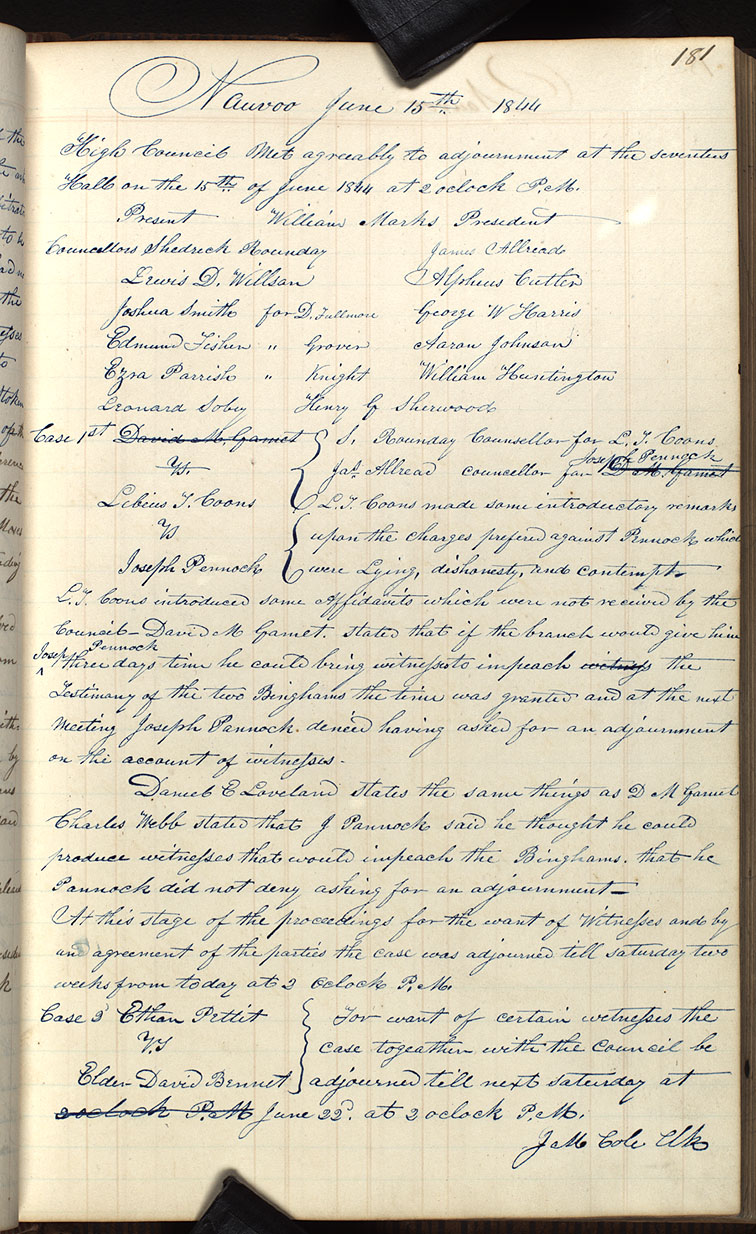 181
Nauvoo June 15th 1844
High Council Met agreeably to adjournment at the seventies
Hall on the 15th of June 1844 at 2 oclock P.M.
Present William Marks President
Councellors Shedrick Rounday James Allread
Lewis D. Willson Alpheus Cutler
Joshua Smith for D. Fullmore George W Harris
Edmund Fisher " Grover Aaron Johnson
Ezra Parrish " Knight William Huntington
Leonard Soby Henry G Sherwood
Case 1st David M. Gamet S. Rounday Counsellor for L. T. Coons
Vs. Jas. Allread councellor for Joseph Pennock D M. Gamet
Lebius T. Coons L. T. Coons made some introductory remarks
Vs upon the charges prefered against Pennock which
Joseph Pennock were Lying, dishonesty, and contempt—
L. T. Coons introduced some Affidavits which were not received by the
Council— David M Gamet stated that if the branch would give him
Joseph Pennock three days time he could bring witnesses to impeach witness the
Testimony of the two Binghams the time was granted and at the next
Meeting Joseph Pannock denied having asked for an adjournment
on the account of witnesses—
Daniel E Loveland states the same things as D M Gamet
Charles Webb stated that J Pannock said he thought he could
produce witnesses that would impeach the Binghams. that he
Pannock did not deny asking for an adjournment—
At this stage of the proceedings for the want of Witnesses and by
an agreement of the parties the case was adjourned till saturday two
weeks from today at 2 oclock P.M.
Case 3d Ethan Pettit For want of certain witnesses the
Vs case togeather with the council be
Elder David Bennet adjourned till next saturday at
2 oclock P.M June 22d. at 2 oclock P.M.
J M Cole Clk